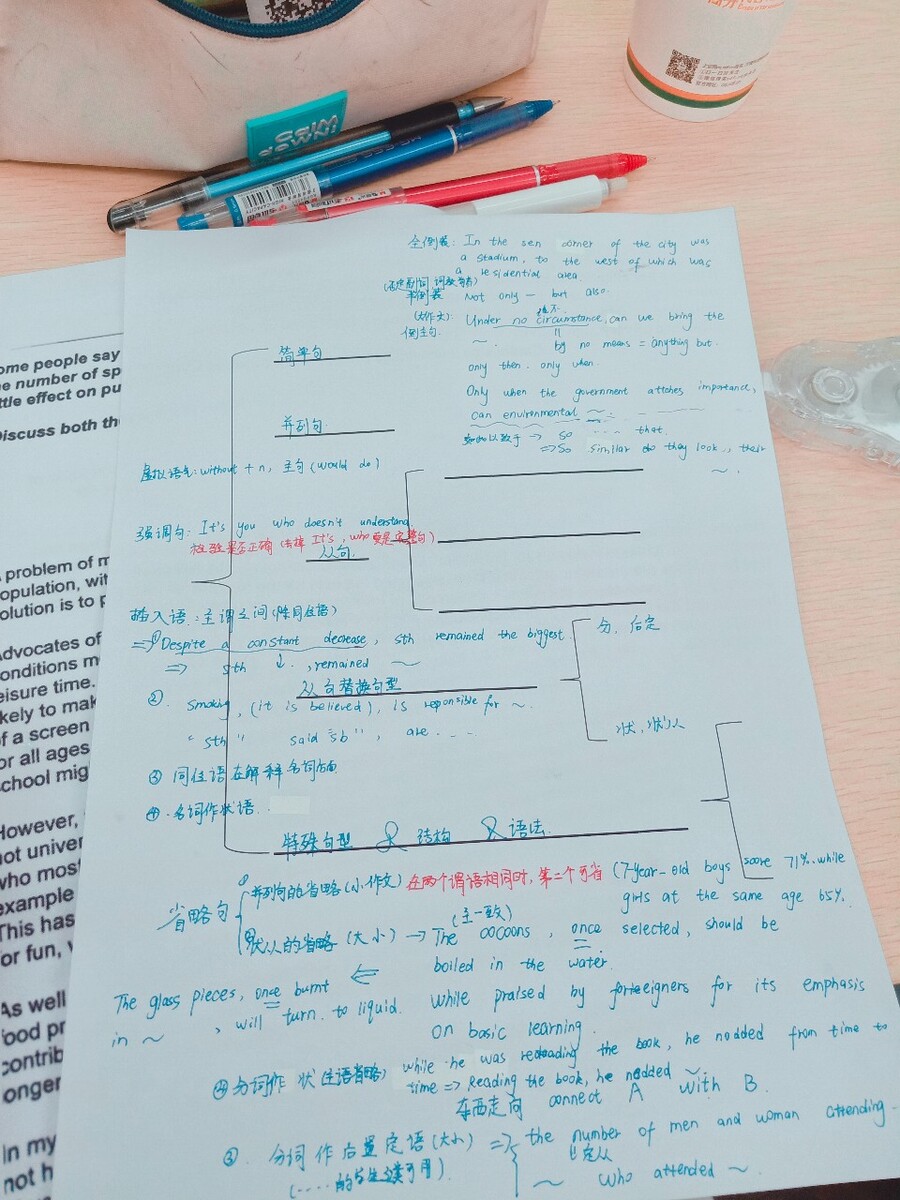 全倒装: In the sen corner of the city was
a stadium, to the west of which was
a residential area
半倒装 Not only — but also.
(大作文) Under no circumstance, can we bring the
倒主句. ~. by no means = anything but.
only then. only when
简单句
Only when the government attches importance,
can environmental ~
并列句
如此以致于 → so .... that.
⇒So similar do they look, their ~.
虚拟语气: without + n, 主句 (would do)
强调句: It's you who doesn't understand.
检验是否正确 (去掉 It's, who 更是完整句)
从句.
插入语: 主谓之间 (除同位语)
⇒① Despite a constant decrease, sth remained the biggest
⇒ sth ↓. , remained ~
分, 后定
从句替换句型
② Smoking, (it is believed), is reponsible for ~.
"sth" said "sb", are ....
状, 状从
③ 同位语在解释名词方面.
④. 名词作状语.
特殊句型 & 结构 & 语法.
省略句
① 并列句的省略 (小作文) 在两个谓语相同时, 第二个可省 (7-year-old boys score 71%. while
girls at the same age 65%.
(主一致)
状从的省略 (大小) → The cocoons, once selected, should be
boiled in the water.
The glass pieces, once burnt
in ~ , will turn to liquid.
While praised by foreigners for its emphasis
on basic learning.
分词作状 (主语省略) while he was reading the book, he nodded from time to
time => Reading the book, he nodded ~
东西走向 connect A with B.
③. 分词作后置定语 (大小) ⇒ the number of men and woman attending
定从
~ who attended ~.
ome people say
e number of sp
ttle effect on pu
iscuss both th
problem of m
opulation, wit
olution is to p
dvocates of
conditions m
eisure time.
kely to mak
of a screen
or all ages
school mig
However,
not univer
who most
example
This has
or fun,
As well
food pr
contrib
onger
In my
not h